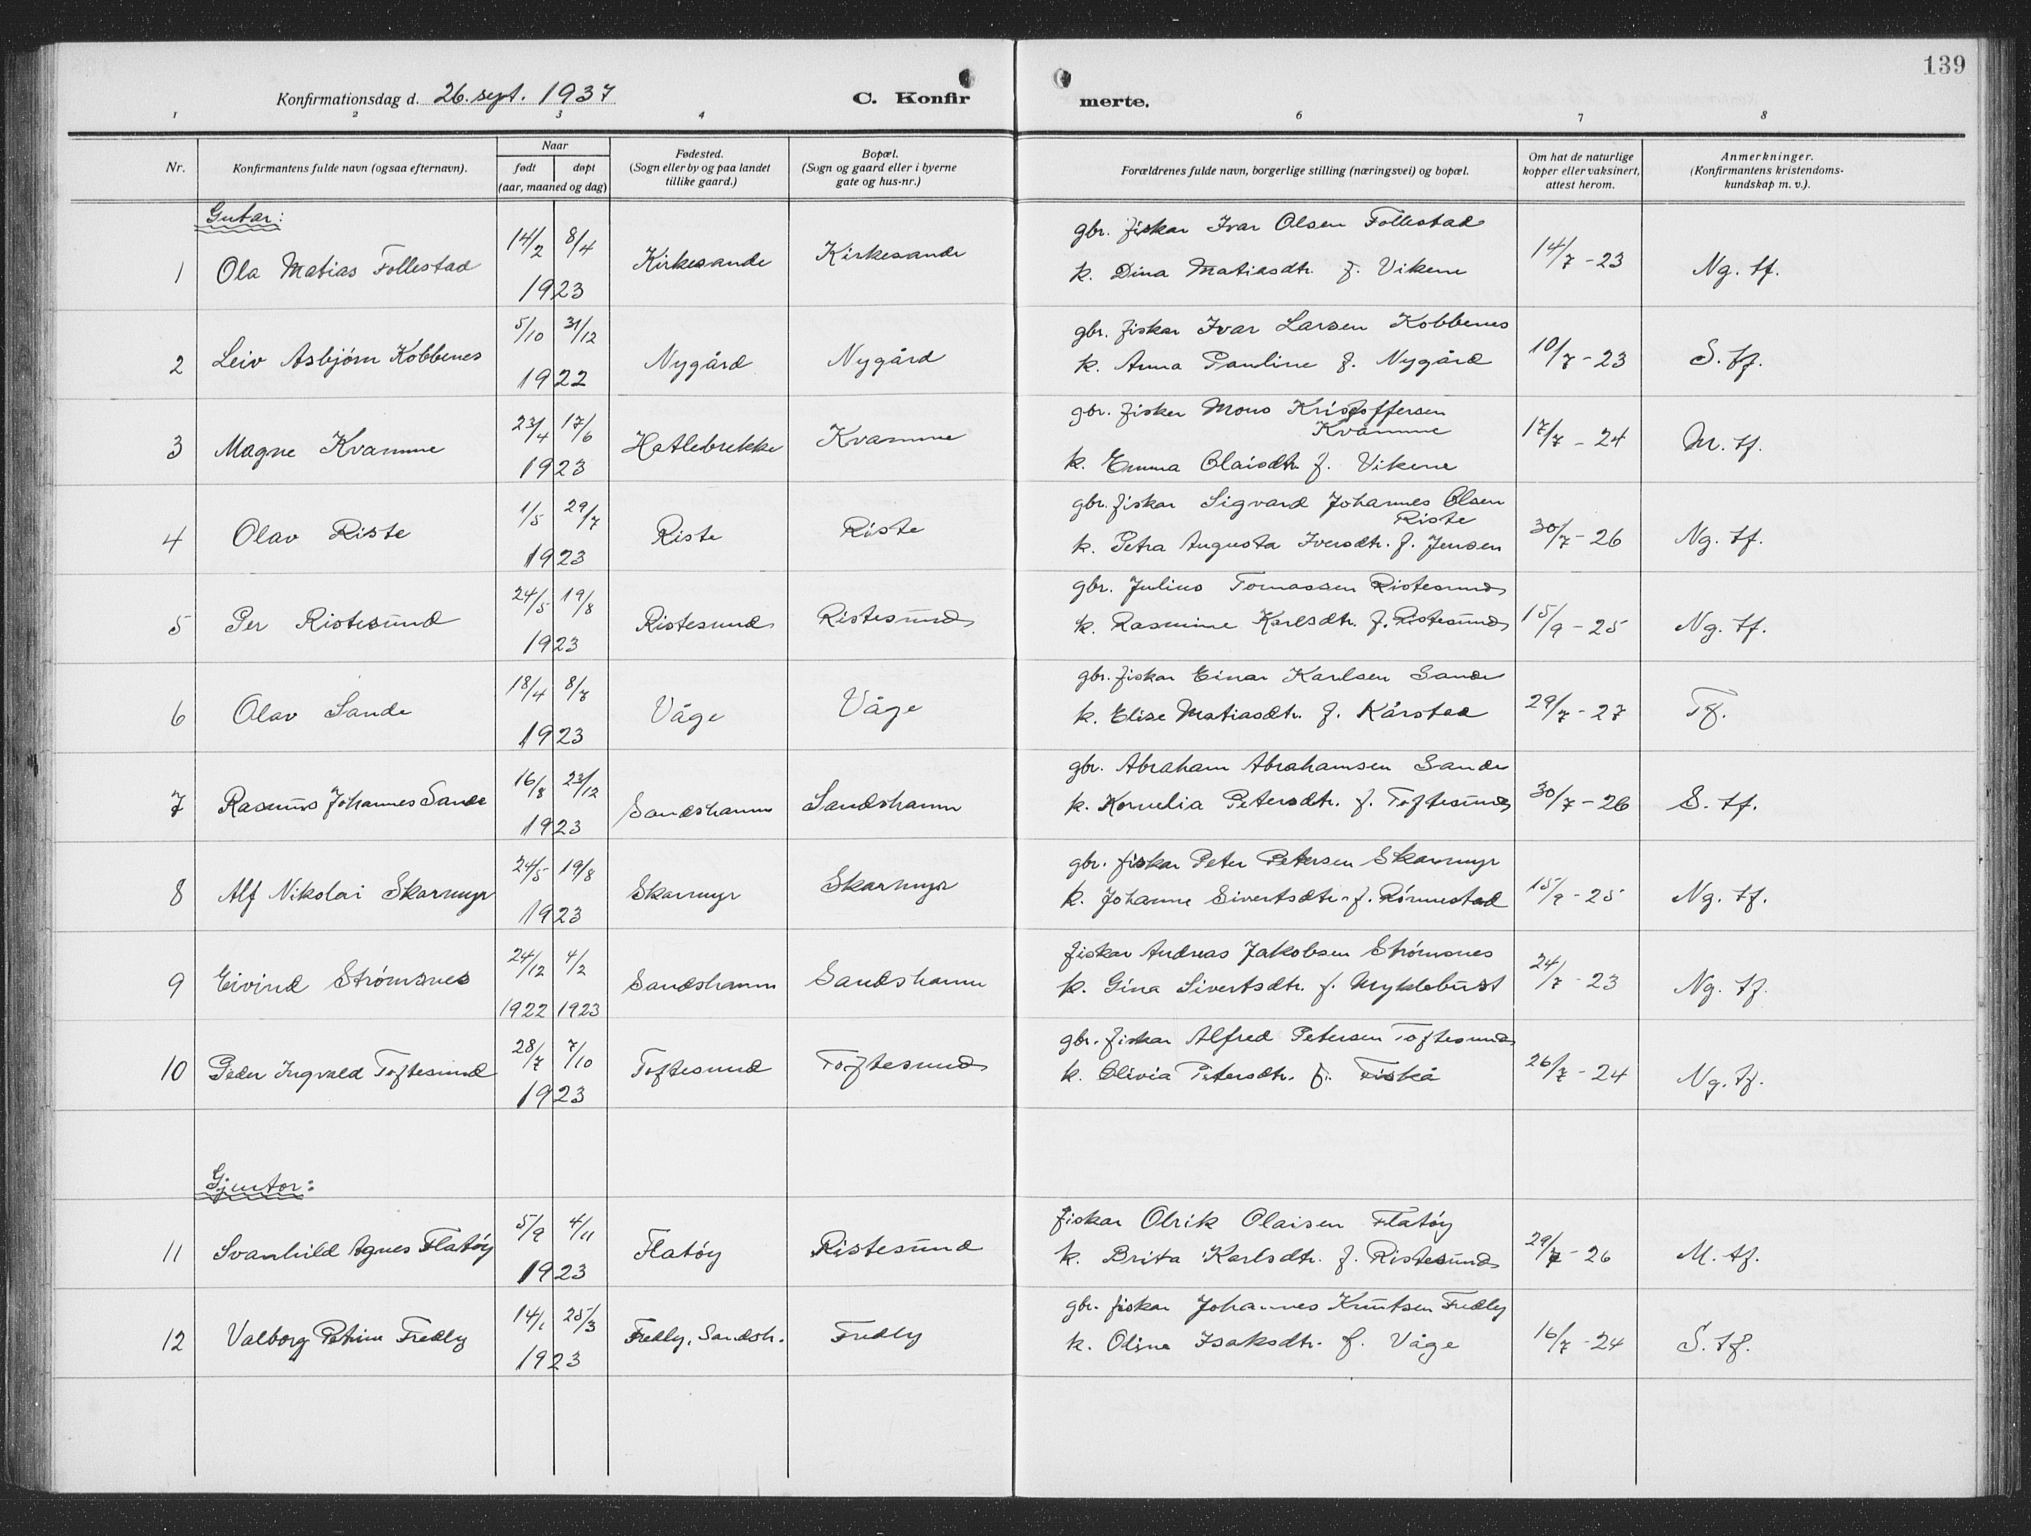 139
Konfirmationsdag d. 26. sept. 1937 C. Konfir merte.
1 2 3 4 6 7 8
Nr. Konfirmantens fulde navn (ogsaa efternavn). Naar født døpt (aar, maaned og dag) Fødested. (Sogn eller by og paa landet tillike gaard.) Bopæl. (Sogn og gaard eller i byerne gate og hus-nr.) Forældrenes fulde navn, borgerlige stilling (næringsvei) og bopæl. Om hat de naturlige kopper eller vaksinert, attest herom. Anmerkninger. (Konfirmantens kristendoms-kundskap m. v.).
Gutar:
1 Ola Matias Follestad 14/2 8/4 1923 Kirkesande Kirkesande gbr. fiskar Ivar Olsen Follestad
k. Dina Matiasdtr. f. Vikene 14/7 - 23 Ng. tf.
2 Leiv Asbjørn Kobbenes 5/10 31/12 1922 Nygård Nygård gbr. fiskar Ivar Larsen Kobbenes
k. Anna Pauline f. Nygård 10/7 - 23 S. tf.
3 Magne Kvamme 23/4 17/6 1923 Hatlebrekke Kvamme gbr. fisker Mons Kristoffersen
Kvamme
k. Emma Olaisdtr. f. Vikene 17/7 - 24 M. tf.
4 Olav Riste 1/5 29/7 1923 Riste Riste gbr. fiskar Sigvard Johannes Olsen
Riste
k. Petra Augusta Iversdtr. f. Jensen 30/7 - 26 Ng. tf.
5 Per Ristesund 24/5 19/8 1923 Ristesund Ristesund gbr. Julius Tomassen Ristesund
k. Rasmine Karlsdtr. f. Ristesund 15/9 - 25 Ng. tf.
6 Olav Sande 18/4 8/7 1923 Våge Våge gbr. fiskar Einar Karlsen Sande
k. Elise Matiasdtr. f. Kårstad 29/7 - 27 Tf.
7 Rasmus Johannes Sande 16/8 23/12 1923 Sandshamn Sandshamn gbr. Abraham Abrahamsen Sande
k. Kornelia Petersdtr. f. Toftesund 30/7 - 26 S. tf.
8 Alf Nikolai Skarmyr 24/5 19/8 1923 Skarmyr Skarmyr gbr. fiskar Peter Petersen Skarmyr
k. Johanne Sivertsdtr. f. Rønnestad 15/9 - 25 Ng. tf.
9 Eivind Strømsnes 24/12 4/2 1922 1923 Sandshamn Sandshamn fiskar Andreas Jakobsen Strømsnes
k. Gina Sivertsdtr. f. Myklebust 24/7 - 23 Ng. tf.
10 Peder Ingvald Toftesund 28/7 7/10 1923 Toftesund Toftesund gbr. fiskar Alfred Petersen Toftesund
k. Olivia Petersdtr. f. Fiskå 26/7 - 24 Ng. tf.
Gjentor:
11 Svanhild Agnes Flatøy 5/9 4/11 1923 Flatøy Ristesund fiskar Olrik Olaisen Flatøy
k. Brita Karlsdtr. f. Ristesund 29/7 - 26 M. tf.
12 Valborg Petrine Fredly 14/1 25/3 1923 Fredly, Sandsh. Fredly gbr. fiskar Johannes Knutsen Fredly
k. Oline Isaksdtr. f. Våge 16/7 - 24 S. tf.